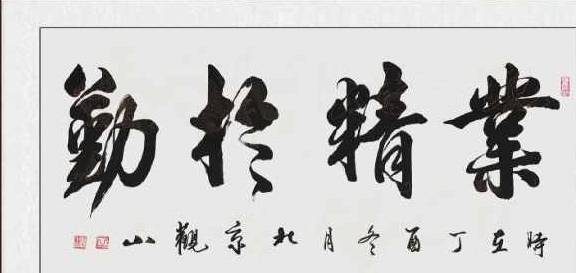 業精於勤
時在丁酉冬月北京觀山